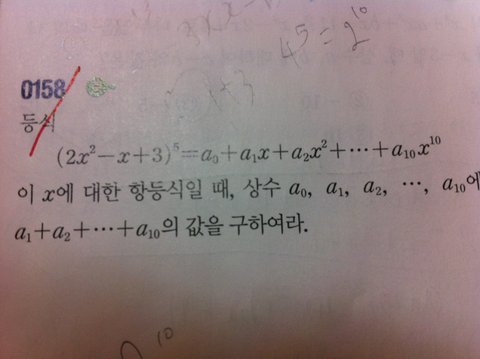 4⁵=2¹⁰
x+3
0158
등식
(2x²-x+3)⁵=a₀+a₁x+a₂x²+⋯+a₁₀x¹⁰
이 x에 대한 항등식일 때, 상수 a₀, a₁, a₂, ⋯, a₁₀에
a₁+a₂+⋯+a₁₀의 값을 구하여라.
10